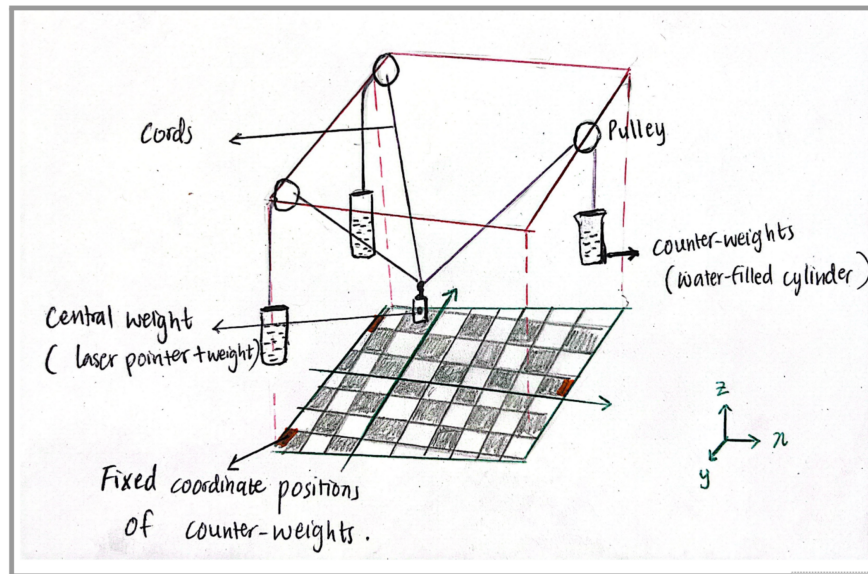 Cords
Pulley
counter-weights
(water-filled cylinder)
Central weight
( laser pointer + weight)
Fixed coordinate positions
of counter-weights.
z
x
y